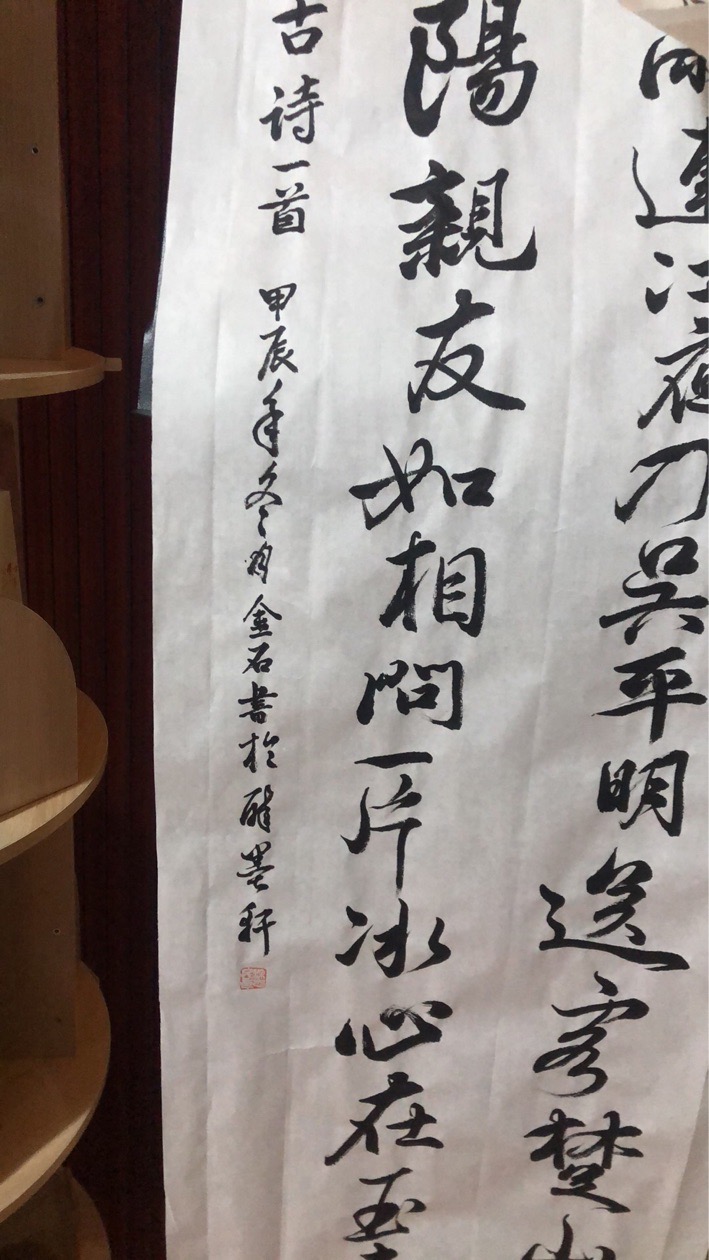 雨連江夜入吳平明送客楚山
陽親友如相問一片冰心在玉
古诗一首 甲辰年冬月金石書於醉墨軒